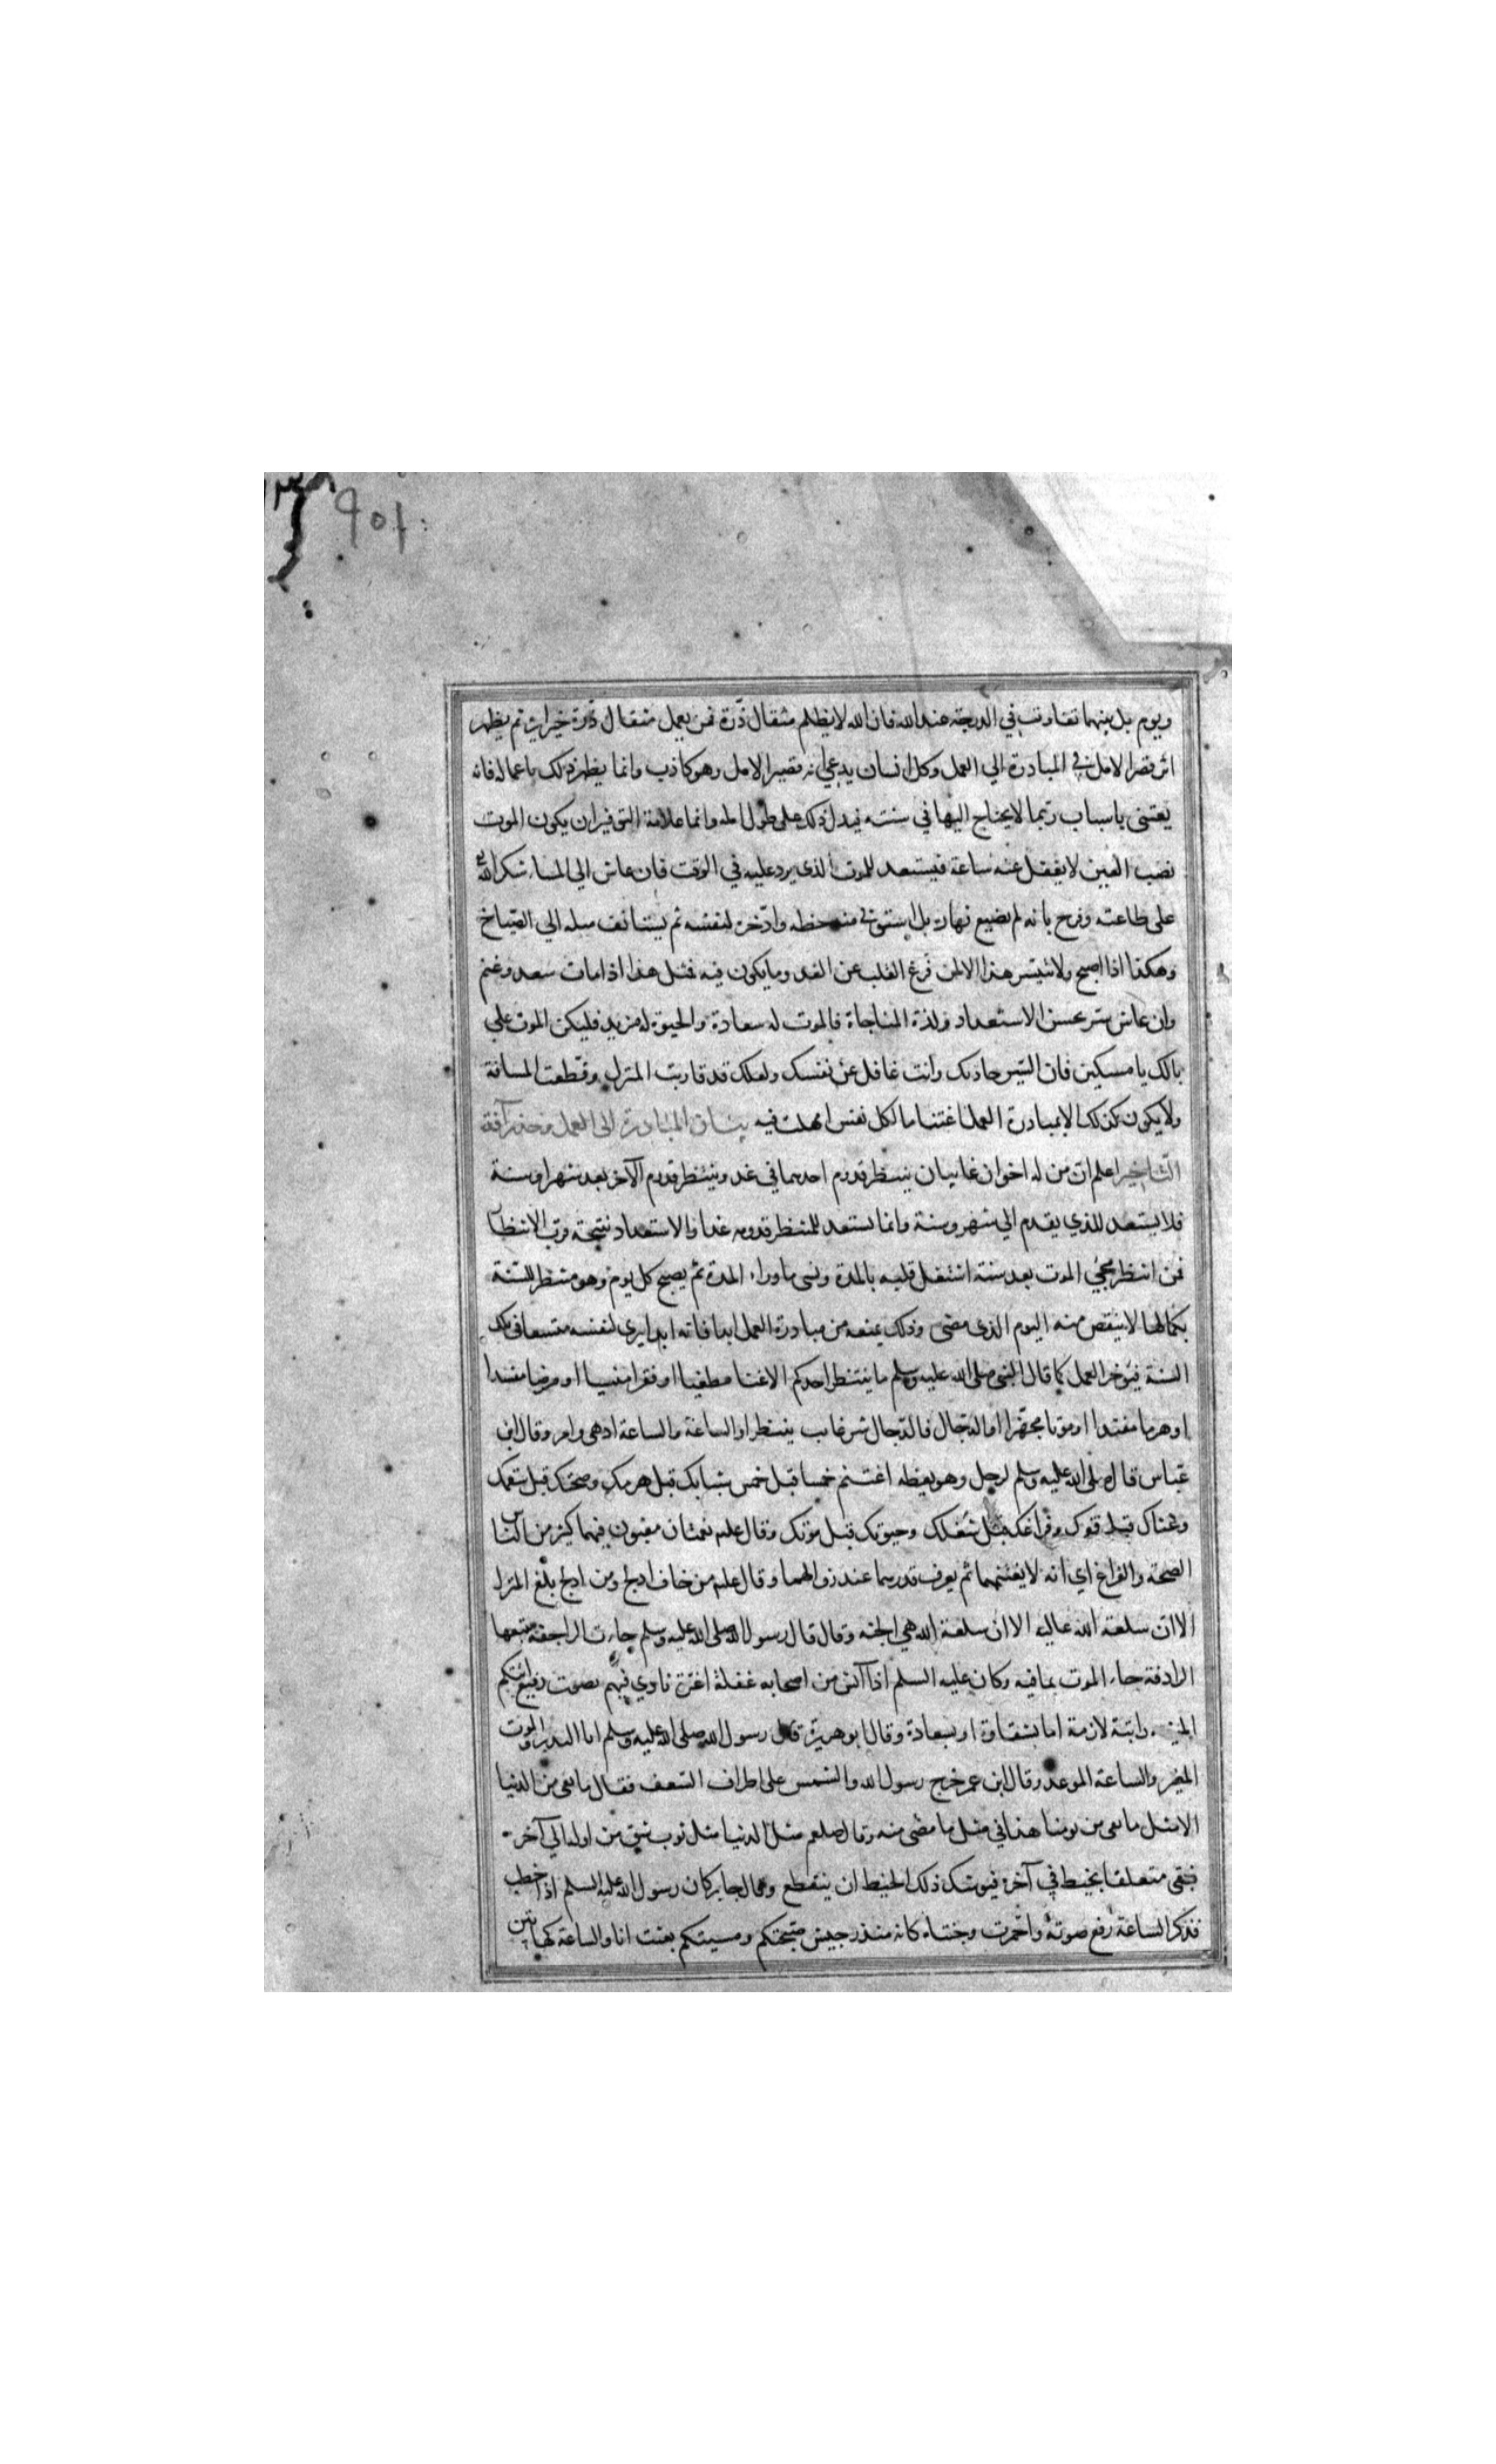 901
ويوم بل بينهما تفاوت في الدرجة عند الله فان الله لا يظلم مثقال ذرة فمن يعمل مثقال ذرة خيرا يره ثم يظهر
اثر قصر الامل في المبادرة الي العمل وكل انسان يدعي انه قصير الامل وهو كاذب وانما يظهر ذلك باعماله فانه
يعتني باسباب ربما لا يحتاج اليها في سنته فيدل ذلك على طول امله وانما علامة التوفيق ان يكون الموت
نصب العين لا يغفل عنه ساعة فيستعد للموت الذي يرد عليه في الوقت فان عاش الي المساء شكر الله
على طاعته وفرح بانه لم يضيع نهاره بل استوفى منه حظه وادخره لنفسه ثم يستانف مثله الي الصباح
وهكذا اذا اصبح ولا يتيسر هذا الا لمن فرغ القلب عن الغد وما يكون فيه فمثل هذا اذا مات سعد وغنم
وان عاش سر بحسن الاستعداد ولذة المناجاة فالموت له سعادة والحيوة له مزيد فليكن الموت علي
بالك يا مسكين فان السير حاد بك وانت غافل عن نفسك ولعلك قد قاربت المنزل وقطعت المسافة
ولا يكون كذلك الا بمبادرة العمل اغتناما لكل نفس امهلت فيه بيان المبادرة الى العمل وحذر آفة
التاخير اعلم ان من له اخوان غايبان ينتظر قدوم احدهما في غد وينتظر قدوم الآخر بعد شهر او سنة
فلا يستعد للذي يقدم الي شهر وسنة وانما يستعد للمنتظر قدومه غدا فالاستعداد نتيجة قرب الانتظار
فمن انتظر مجئ الموت بعد سنة اشتغل قلبه بالمدة ونسي ما وراء المدة ثم يصبح كل يوم وهو منتظر للسنة
بكمالها لا ينقص منه اليوم الذي مضى وذلك يمنعه من مبادرة العمل ابدا فانه ابدا يري لنفسه متسعا في تلك
السنة فيؤخر العمل كما قال النبي صلى الله عليه وسلم ما ينتظر احدكم الا غنا مطغيا او فقرا منسيا او مرضا مفسدا
او هرما مفندا او موتا مجهزا او الدجال فالدجال شر غايب ينتظر او الساعة والساعة ادهى وامر وقال ابن
عباس قال صلى الله عليه وسلم لرجل وهو يعظه اغتنم خمسا قبل خمس شبابك قبل هرمك وصحتك قبل سقمك
وغناك قبل فقرك وفراغك قبل شغلك وحيوتك قبل موتك وقال عليه نعمتان مغبون فيهما كثير من الناس
الصحة والفراغ اي انه لا يغتنمهما ثم يعرف قدرهما عند زوالهما وقال عليه من خاف ادلج ومن ادلج بلغ المنزل
الا ان سلعة الله عالية الا ان سلعة الله هي الجنة وقال قال رسول الله صلى الله عليه وسلم جاءت الراجفة تتبعها
الرادفة جاء الموت بما فيه وكان عليه السلم اذا آنس من اصحابه غفلة او غرة نادي فيهم بصوت رفيع اتتكم
المنية راتبة لازمة اما بشقاوة او بسعادة وقال ابو هريرة قال رسول الله صلى الله عليه وسلم انا النذير والموت
المغير والساعة الموعد وقال ابن عمر خرج رسول الله والشمس على اطراف السعف فقال ما بقي من الدنيا
الا مثل ما بقي من يومنا هذا في مثل ما مضى منه وقال صلعم مثل الدنيا مثل ثوب شق من اوله الي آخره
فبقي متعلقا بخيط في آخره فيوشك ذلك الخيط ان ينقطع وقال جابر كان رسول الله عليه السلم اذا خطب
فذكر الساعة رفع صوته واحمرت وجنتاه كانه منذر جيش صبحتكم ومسيتكم بعثت انا والساعة كهاتين